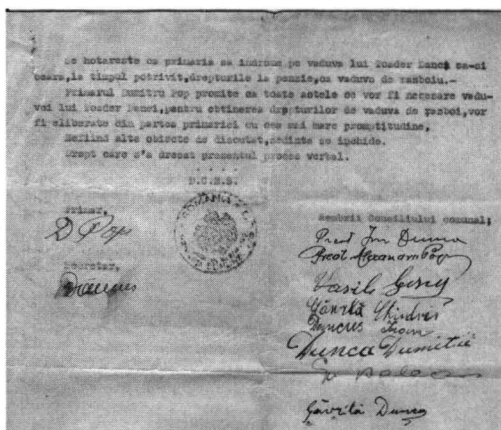 Se hotareste ca primaria sa indrume pe vaduva lui Toader Danci sa-si
ceara,la timpul potrivit,drepturile la pensie,ca vaduva de rasboiu.-
Primarul Dumitru Pop promite ca toate actele ce vor fi necesare vadu-
vei lui Toader Danci,pentru obtinerea drepturilor de vaduva de rasboi,vor
fi eliberate din partea primariei cu cea mai mare promptitudine.
Nefiind alte obiecte de discutat,sedinta se inchide.
Drept care s'a dresat prezentul proces verbal.
D.C.M.S.
Primar,
D Pop
Membrii Consiliului comunal;
Preot Ion Dunca
Preot Alexandru Pop
Secretar,
Vasile
Găvrilă
Ioan
Dunca Dumitru
Găvrilă Dunca